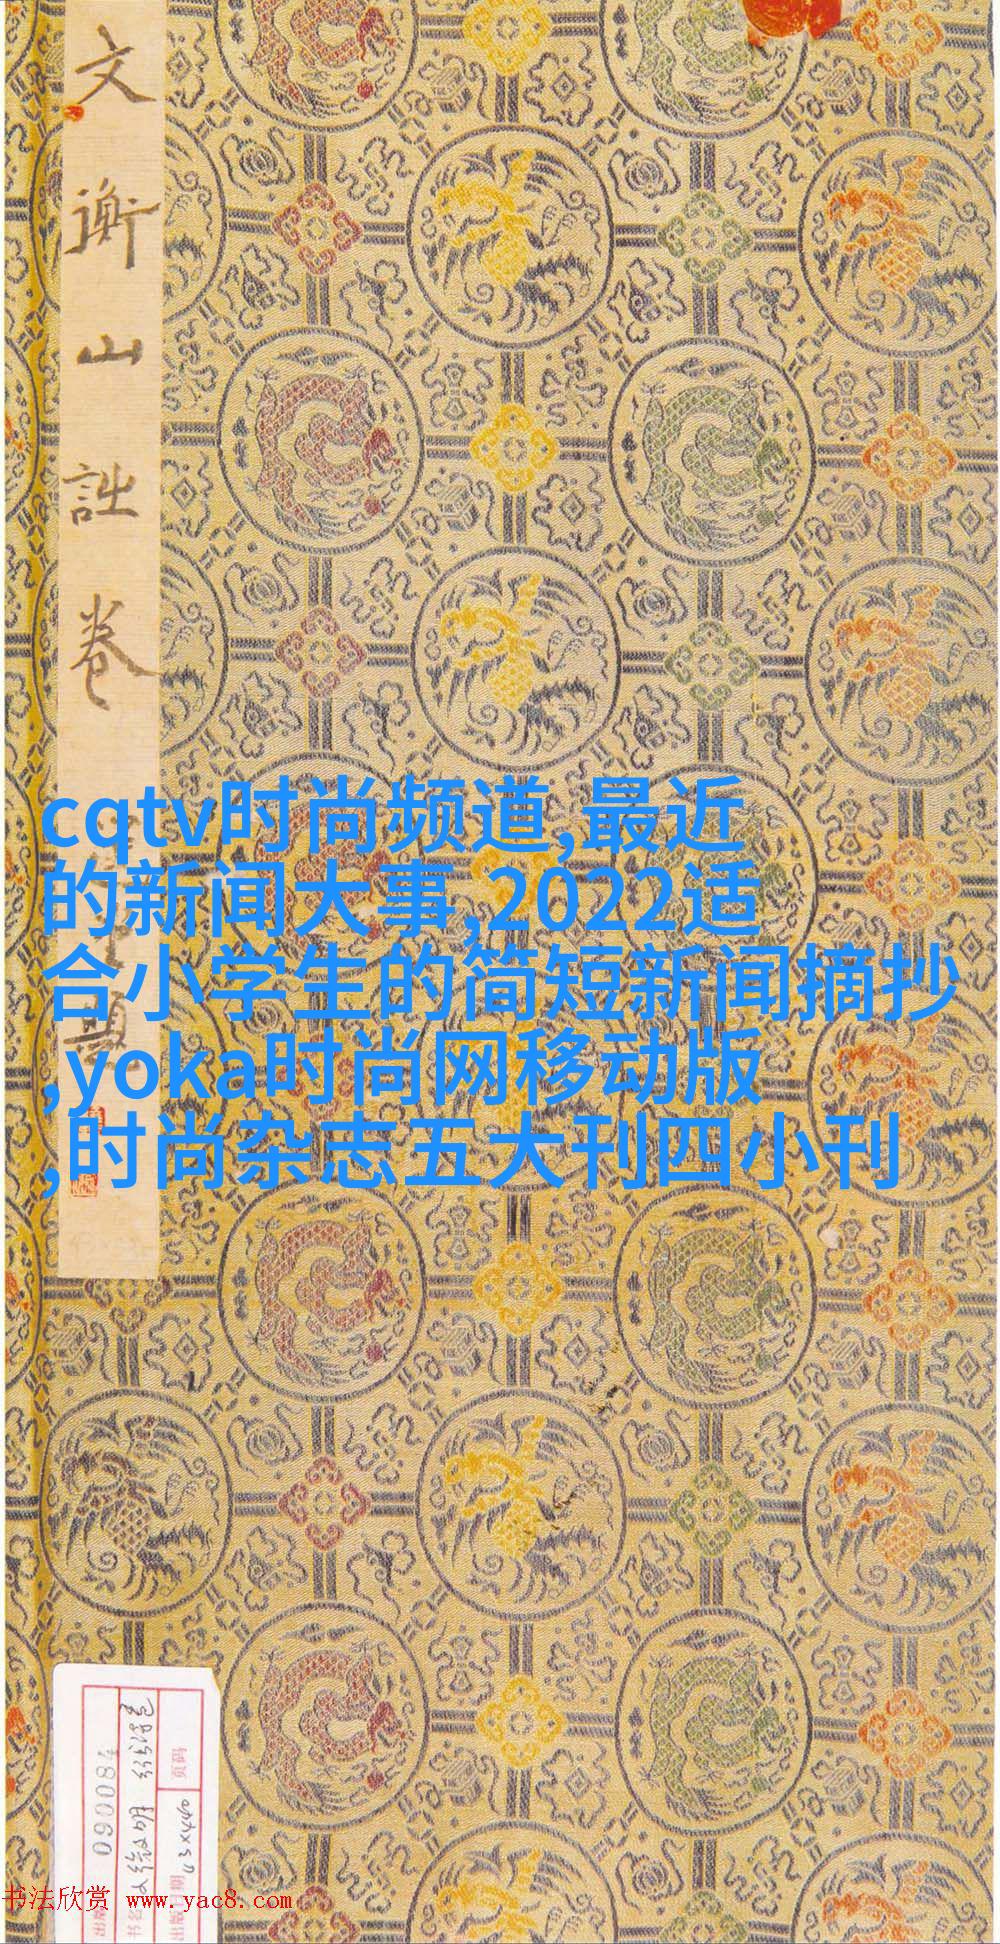 文衡山詵卷
cqtv时尚频道,最近
的新闻大事,2022适
合小学生的简短新闻摘抄
,yoka时尚网移动版
,时尚杂志五大刊四小刊
090084
页码
43x440
书法欣赏 www.yac8.com